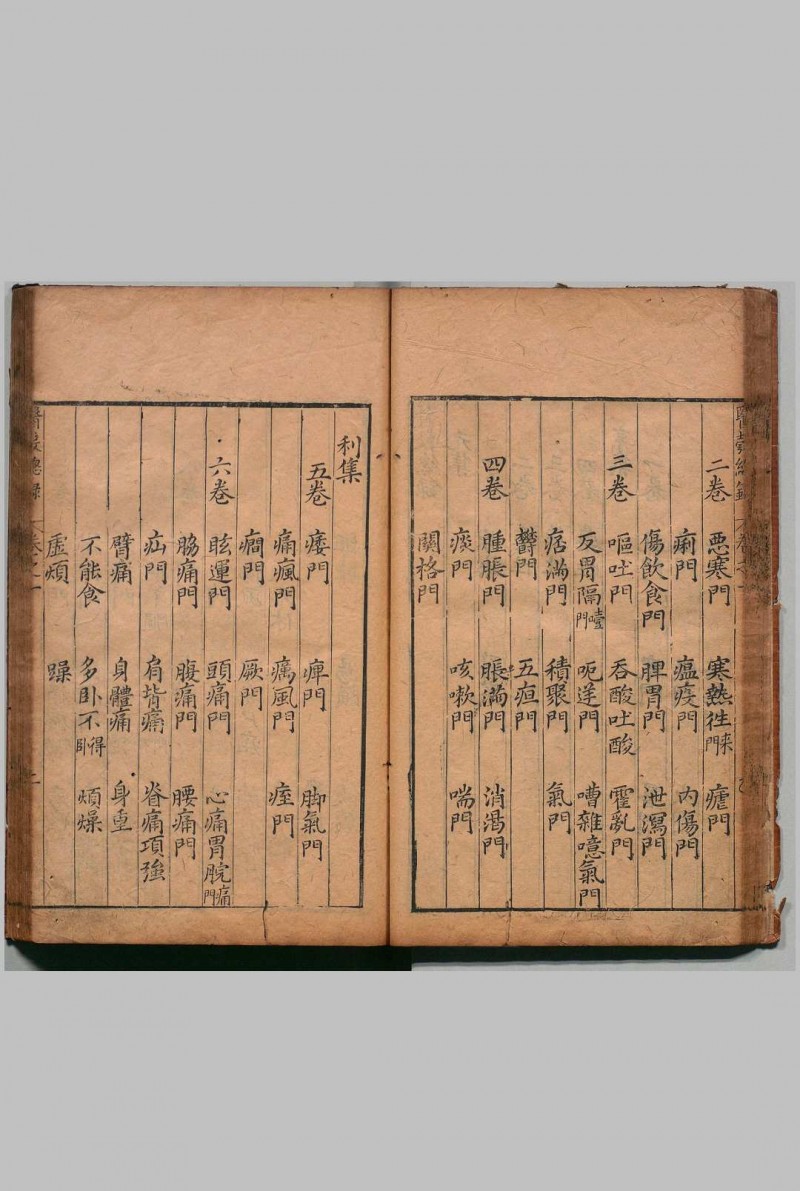 二卷 惡寒門 寒熱徃來門 瘧門
痢門 瘟疫門 內傷門
傷飲食門 脾胃門 泄瀉門
三卷 嘔吐門 吞酸吐酸 霍亂門
反胃隔噎門 呃逆門 嘈雜噫氣門
痞滿門 積聚門 氣門
鬱門 五疸門
四卷 腫脹門 脹滿門 消渴門
痰門 咳嗽門 喘門
關格門
利集
五卷 痿門 痺門 脚氣門
痛瘋門 癘風門 痓門
癇門 厥門
六卷 眩運門 頭痛門 心痛胃脘痛門
脇痛門 腹痛門 腰痛門
疝門 肩背痛 脊痛項強
臂痛 身體痛 身重
不能食 多卧不得卧 煩燥
虛煩 躁